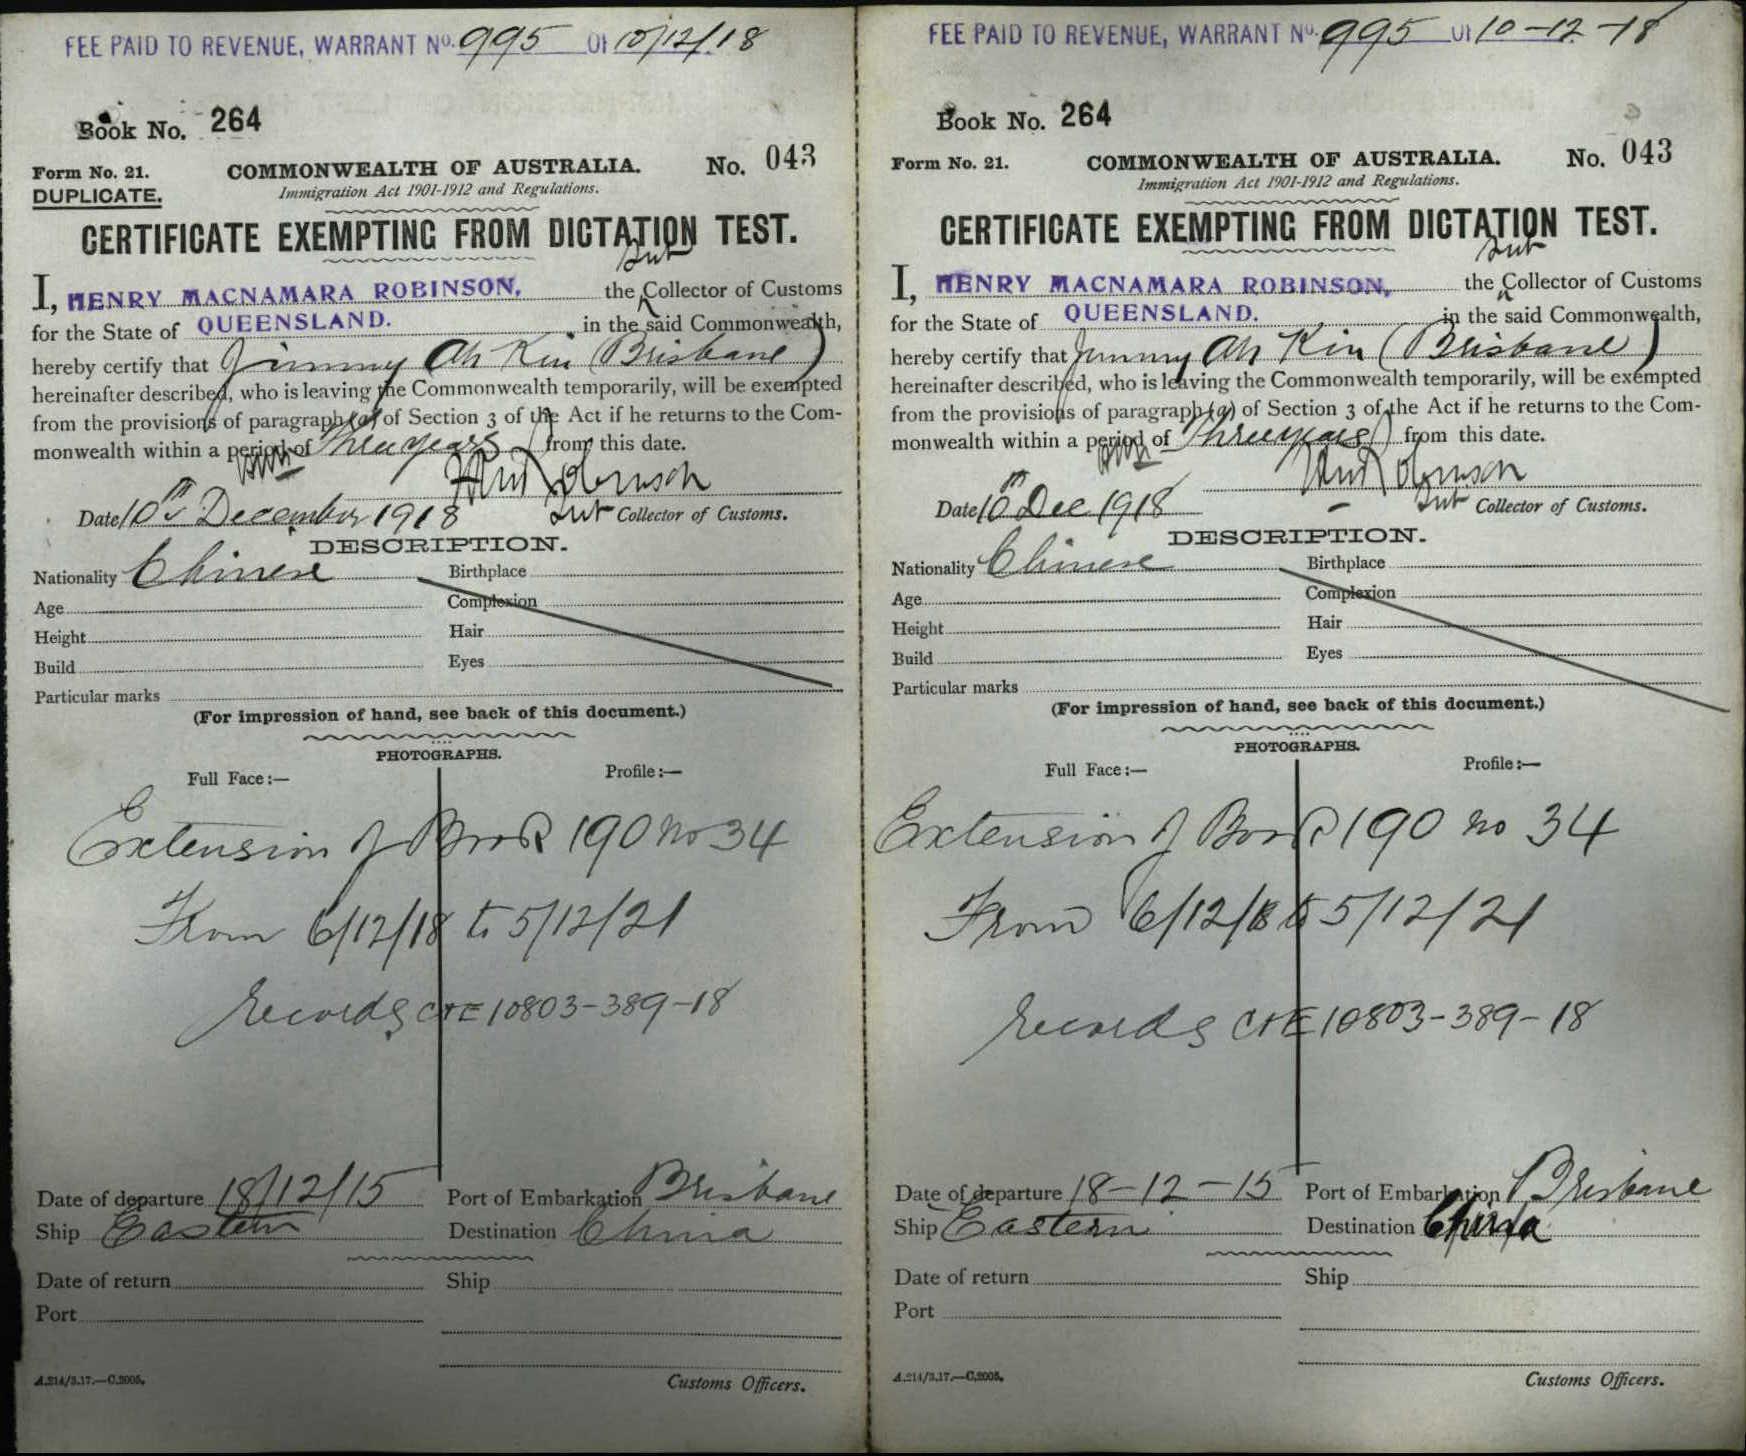 FEE PAID TO REVENUE, WARRANT No. 995 of 10/12/18
Book No. 264
Form No. 21.
COMMONWEALTH OF AUSTRALIA.
No. 043
DUPLICATE.
Immigration Act 1901-1912 and Regulations.
CERTIFICATE EXEMPTING FROM DICTATION TEST.
Sub
I, HENRY MACNAMARA ROBINSON, the Collector of Customs
for the State of QUEENSLAND. in the said Commonwealth,
hereby certify that Jimmy Ah Kin (Brisbane)
hereinafter described, who is leaving the Commonwealth temporarily, will be exempted
from the provisions of paragraph (a) of Section 3 of the Act if he returns to the Com-
monwealth within a period of Three years from this date.
HMRobinson
Date 10th December 1918
Sub Collector of Customs.
DESCRIPTION.
Nationality Chinese Birthplace
Age Complexion
Height Hair
Build Eyes
Particular marks
(For impression of hand, see back of this document.)
PHOTOGRAPHS.
Full Face:— Profile:—
Extension of Book 190 no 34
From 6/12/18 to 5/12/21
Records C+E 10803-389-18
Date of departure 18/12/15 Port of Embarkation Brisbane
Ship Eastern Destination China
Date of return Ship
Port
A.214/3.17.—C.2005.
Customs Officers.
FEE PAID TO REVENUE, WARRANT No. 995 of 10-12-18
Book No. 264
Form No. 21.
COMMONWEALTH OF AUSTRALIA.
No. 043
Immigration Act 1901-1912 and Regulations.
CERTIFICATE EXEMPTING FROM DICTATION TEST.
Sub
I, HENRY MACNAMARA ROBINSON, the Collector of Customs
for the State of QUEENSLAND. in the said Commonwealth,
hereby certify that Jimmy Ah Kin (Brisbane)
hereinafter described, who is leaving the Commonwealth temporarily, will be exempted
from the provisions of paragraph (a) of Section 3 of the Act if he returns to the Com-
monwealth within a period of Three years from this date.
HMRobinson
Date 10th Dec 1918
Sub Collector of Customs.
DESCRIPTION.
Nationality Chinese Birthplace
Age Complexion
Height Hair
Build Eyes
Particular marks
(For impression of hand, see back of this document.)
PHOTOGRAPHS.
Full Face:— Profile:—
Extension of Book 190 no 34
From 6/12/18 to 5/12/21
Records C+E 10803-389-18
Date of departure 18-12-15 Port of Embarkation Brisbane
Ship Eastern Destination China
Date of return Ship
Port
A.214/3.17.—C.2005.
Customs Officers.